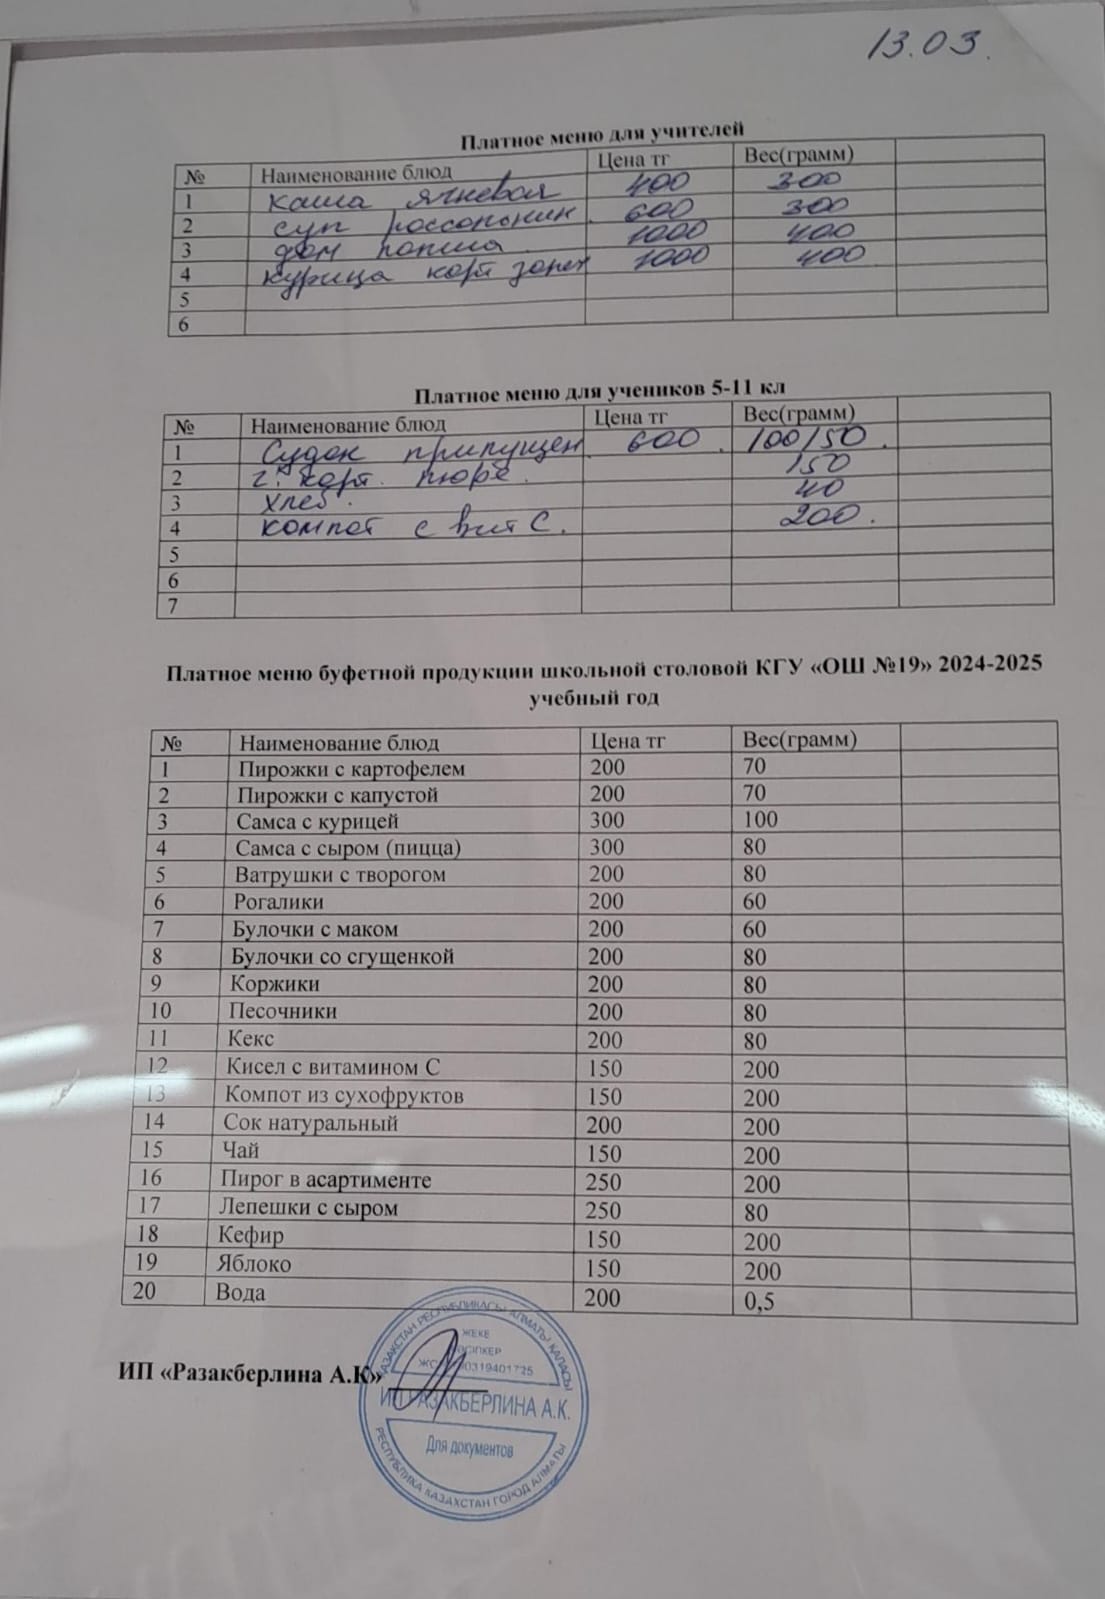 13.03.
Платное меню для учителей
№ Наименование блюд Цена тг Вес(грамм)
1 каша ячневая 400 300
2 суп россольник 600 300
3 дом лапша 1000 400
4 курица карт запеч 1000 400
5
6
Платное меню для учеников 5-11 кл
№ Наименование блюд Цена тг Вес(грамм)
1 Судак припущен. 600. 100/50.
2 г. карт. пюре. 150
3 хлеб. 40
4 компот с вит С. 200.
5
6
7
Платное меню буфетной продукции школьной столовой КГУ «ОШ №19» 2024-2025
учебный год
№ Наименование блюд Цена тг Вес(грамм)
1 Пирожки с картофелем 200 70
2 Пирожки с капустой 200 70
3 Самса с курицей 300 100
4 Самса с сыром (пицца) 300 80
5 Ватрушки с творогом 200 80
6 Рогалики 200 60
7 Булочки с маком 200 60
8 Булочки со сгущенкой 200 80
9 Коржики 200 80
10 Песочники 200 80
11 Кекс 200 80
12 Кисел с витамином С 150 200
13 Компот из сухофруктов 150 200
14 Сок натуральный 200 200
15 Чай 150 200
16 Пирог в асартименте 250 200
17 Лепешки с сыром 250 80
18 Кефир 150 200
19 Яблоко 150 200
20 Вода 200 0,5
ИП «Разакберлина А.К»
ҚАЗАҚСТАН РЕСПУБЛИКАСЫ АЛМАТЫ ҚАЛАСЫ
ЖЕКЕ
ИП РАЗАКБЕРЛИНА А.К.
Для документов
РЕСПУБЛИКА КАЗАХСТАН ГОРОД АЛМАТЫ